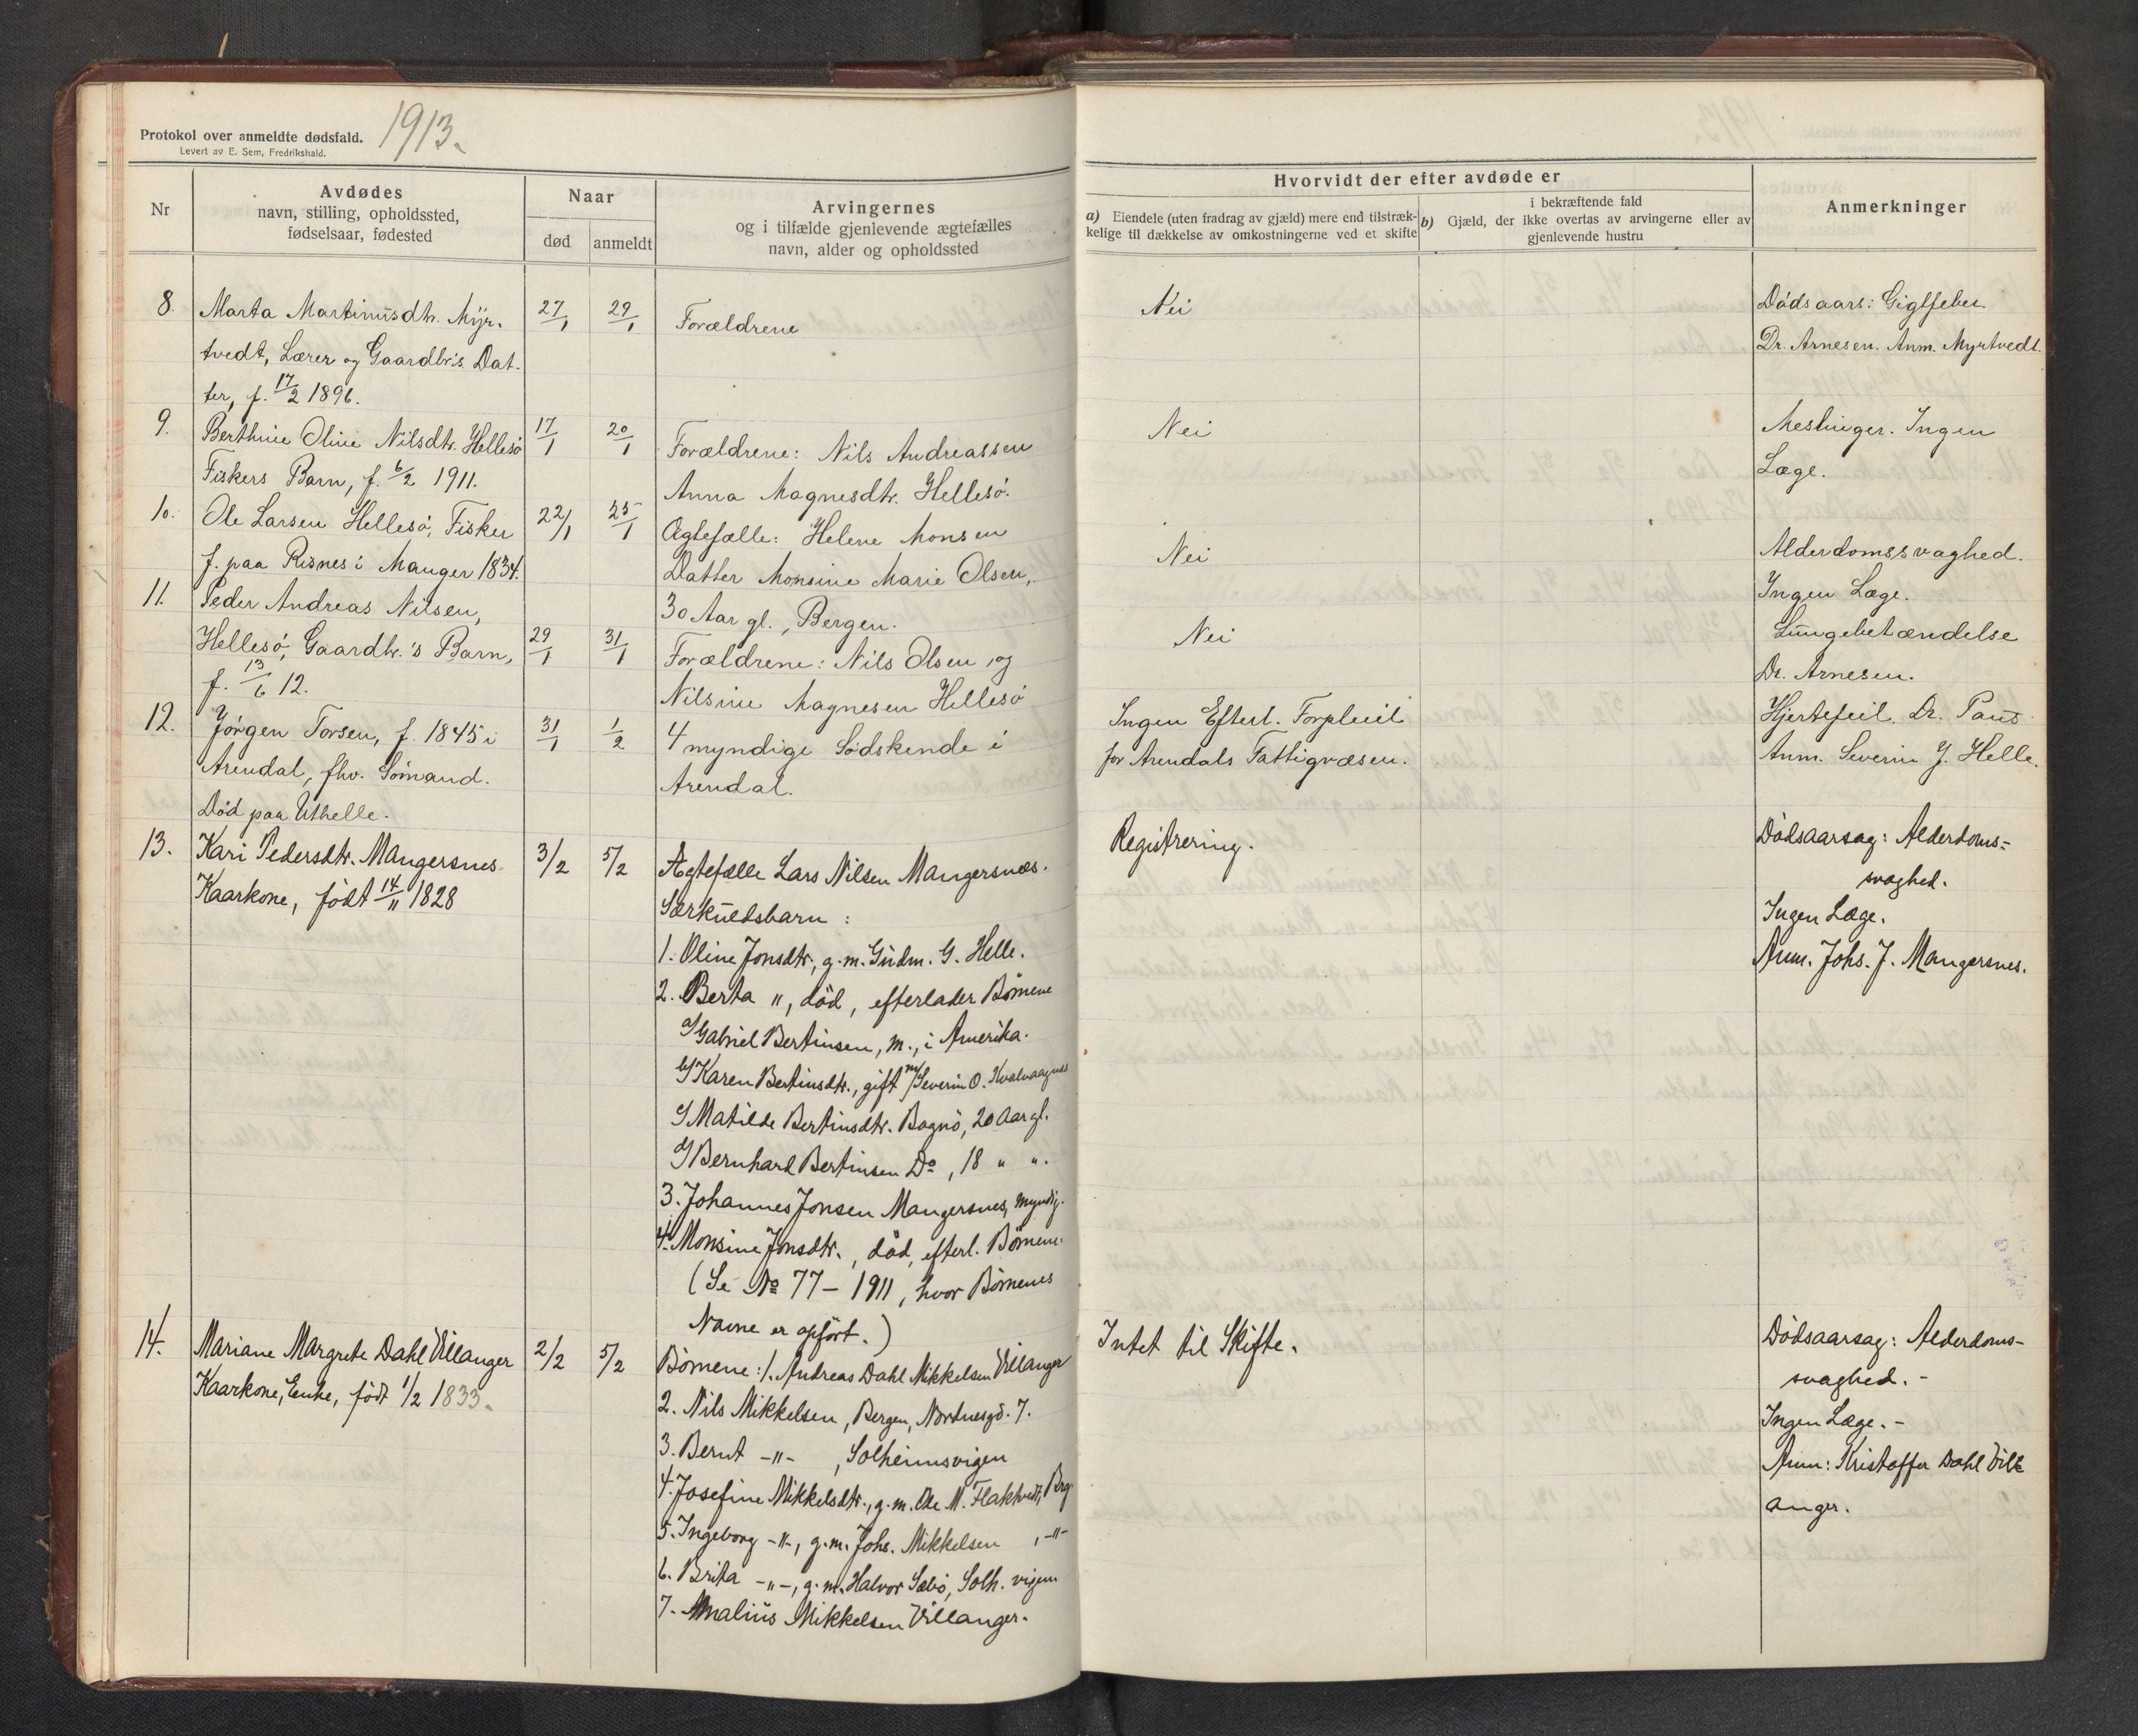 Protokol over anmeldte dødsfald. 1913.
Levert av E. Sem, Fredrikshald.
Nr
Avdødes
navn, stilling, opholdssted,
fødselsaar, fødested
Naar
død
anmeldt
Arvingernes
og i tilfælde gjenlevende ægtefælles
navn, alder og opholdssted
Hvorvidt der efter avdøde er
a) Eiendele (uten fradrag av gjæld) mere end tilstræk-
kelige til dækkelse av omkostningerne ved et skifte
i bekræftende fald
b) Gjæld, der ikke overtas av arvingerne eller av
gjenlevende hustru
Anmerkninger
8. Marta Martinusdtr. Myr-
tvedt, Lærer og Gaardbr's. Dat-
ter, f. 17/2 1896.
27/1
29/1
Forældrene
Nei
Dødsaars: Gigtfeber.
Dr. Arnesen. Anm. Myrtvedt.
9. Berthine Oline Nilsdtr. Hellesø
Fiskers Barn, f. 6/2 1911.
17/1
20/1
Forældrene: Nils Andreassen
Anna Magnesdtr. Hellesø.
Nei
Meslinger. Ingen
Læge.
10. Ole Larsen Hellesø, Fisker
f. paa Risnes i Manger 1834.
22/1
25/1
Ægtefælle: Helene Monsen
Datter Monsine Marie Olsen,
30 Aar gl., Bergen.
Nei
Alderdomssvaghed.
Ingen Læge.
11. Peder Andreas Nilsen,
Hellesø, Gaardbr.'s Barn,
f. 13/6 12.
29/1
31/1
Forældrene: Nils Olsen og
Nilsine Magnesen Hellesø
Nei
Lungebetændelse
Dr. Arnesen.
12. Jørgen Torsen, f. 1845 i
Arendal, fhv. Sømand.
Død paa Uthelle.
31/1
1/2
4 myndige Sødskende i
Arendal.
Ingen Efterl. Forpleiet
for Arendals Fattigvæsen.
Hjertefeil. Dr. Paus
Anm. Severin J. Helle.
13. Kari Pedersdtr. Mangersnes
Kaarkone, født 14/11 1828
3/2
5/2
Ægtefælle Lars Nilsen Mangersnæs.
Særkuldsbarn :
1. Oline Jonsdtr, g.m. Gudm. G. Helle.
2. Berta ", død, efterlader Børnene
a/ Gabriel Bertinsen, m., i Amerika.
b/ Karen Bertinsdtr., gift m/ Severin O. Kvalvaagnes
c/ Matilde Bertinsdtr. Bognø, 20 Aar gl.
d/ Bernhard Bertinsen Do, 18 " ".
3. Johannes Jonsen Mangersnes, myndig.
4. Monsine Jonsdtr., død, efterl. Børnene.
(Se No 77 - 1911, hvor Børnenes
Navne er opført.)
Registrering.
Dødsaarsag: Alderdoms-
svaghed.
Ingen Læge.
Anm. Johs. J. Mangersnes.
14. Mariane Margrete Dahl Villanger
Kaarkone, Enke, født 1/2 1833.
2/2
5/2
Børnene: 1. Andreas Dahl Mikkelsen Villanger
2. Nils Mikkelsen, Bergen, Nordnesgd. 7.
3. Bernt -"- , Solheimsvigen
4. Josefine Mikkelsdtr., g.m. Ole M. Flaktvedt, Brg
5. Ingeborg -"-, g.m. Johs. Mikkelsen , -"-
6. Brita -"-, g.m. Halvor Sæbø, Solh. vigen
7. Amalius Mikkelsen Villanger.
Intet til Skifte.
Dødsaarsag: Alderdoms-
svaghed. -
Ingen Læge. -
Anm: Kristoffer Dahl Vill-
anger.